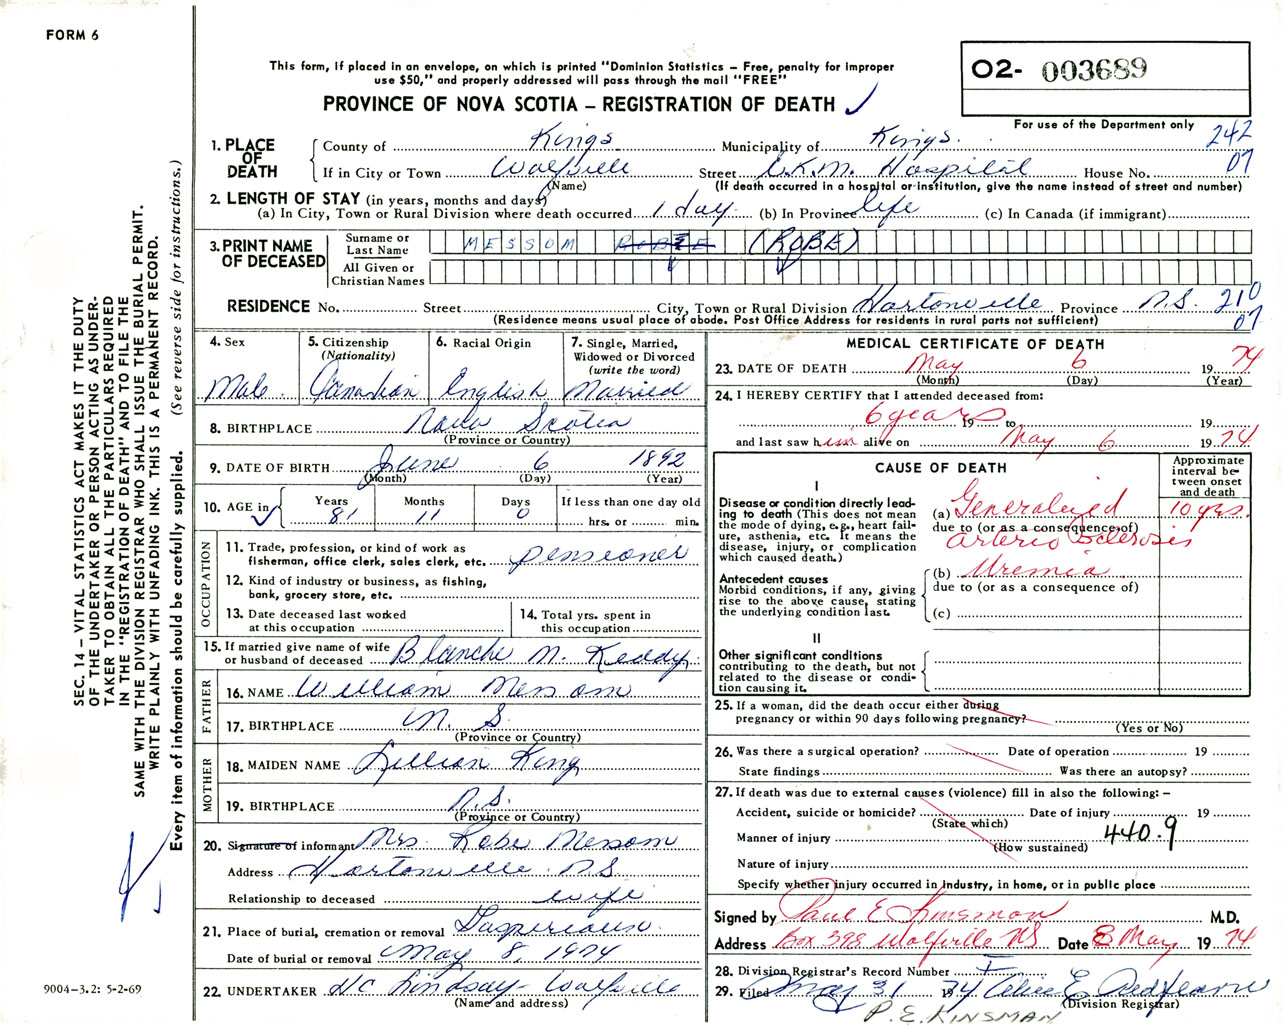 FORM 6
This form, if placed in an envelope, on which is printed "Dominion Statistics – Free, penalty for improper
use $50," and properly addressed will pass through the mail "FREE"
PROVINCE OF NOVA SCOTIA – REGISTRATION OF DEATH
02- 003689
For use of the Department only
242
07
1. PLACE OF DEATH
County of Kings Municipality of Kings.
If in City or Town Wolfville Street E.K.M. Hospital House No.
(Name) (If death occurred in a hospital or institution, give the name instead of street and number)
2. LENGTH OF STAY (in years, months and days)
(a) In City, Town or Rural Division where death occurred 1 day (b) In Province life (c) In Canada (if immigrant)
3. PRINT NAME OF DECEASED
Surname or Last Name MESSOM ROBIE (ROBE)
All Given or Christian Names
RESIDENCE No. Street City, Town or Rural Division Hortonville Province N.S. 210
(Residence means usual place of abode. Post Office Address for residents in rural parts not sufficient) 07
4. Sex Male.
5. Citizenship (Nationality) Canadian
6. Racial Origin English
7. Single, Married, Widowed or Divorced (write the word) Married
8. BIRTHPLACE Nova Scotia
(Province or Country)
9. DATE OF BIRTH June 6 1892
(Month) (Day) (Year)
10. AGE in Years 81 Months 11 Days 0 If less than one day old hrs. or min.
OCCUPATION
11. Trade, profession, or kind of work as
fisherman, office clerk, sales clerk, etc. pensioner
12. Kind of industry or business, as fishing,
bank, grocery store, etc.
13. Date deceased last worked
at this occupation
14. Total yrs. spent in
this occupation
15. If married give name of wife
or husband of deceased Blanche M. Keddy
FATHER
16. NAME William Messom
17. BIRTHPLACE N. S.
(Province or Country)
MOTHER
18. MAIDEN NAME Lillian King
19. BIRTHPLACE N.S.
(Province or Country)
20. Signature of informant Mrs. Robe Messom
Address Hortonville N.S.
Relationship to deceased wife
21. Place of burial, cremation or removal Gaspereau
Date of burial or removal May 8, 1974
22. UNDERTAKER H/C Lindsay - Wolfville
(Name and address)
MEDICAL CERTIFICATE OF DEATH
23. DATE OF DEATH May 6 19 74
(Month) (Day) (Year)
24. I HEREBY CERTIFY that I attended deceased from:
6 years 19 to 19
and last saw him alive on May 6 19 74
CAUSE OF DEATH
Approximate interval between onset and death
I
Disease or condition directly lead-
ing to death (This does not mean
the mode of dying, e.g., heart fail-
ure, asthenia, etc. It means the
disease, injury, or complication
which caused death.)
(a) Generalized 10 yrs.
due to (or as a consequence of)
Arterio Sclerosis
Antecedent causes
Morbid conditions, if any, giving
rise to the above cause, stating
the underlying condition last.
(b) Uremia
due to (or as a consequence of)
(c)
II
Other significant conditions
contributing to the death, but not
related to the disease or condi-
tion causing it.
25. If a woman, did the death occur either during
pregnancy or within 90 days following pregnancy?
(Yes or No)
26. Was there a surgical operation? Date of operation 19
State findings Was there an autopsy?
27. If death was due to external causes (violence) fill in also the following: –
Accident, suicide or homicide? Date of injury 19
(State which)
Manner of injury 440.9
(How sustained)
Nature of injury
Specify whether injury occurred in industry, in home, or in public place
Signed by Paul E Kinsman M.D.
Address Box 398 Wolfville NS Date 8 May 19 74
28. Division Registrar's Record Number
29. Filed May 31 19 74 Alice E. Redfearn
(Division Registrar)
P. E. KINSMAN
SEC. 14 – VITAL STATISTICS ACT MAKES IT THE DUTY
OF THE UNDERTAKER OR PERSON ACTING AS UNDER-
TAKER TO OBTAIN ALL THE PARTICULARS REQUIRED
IN THE "REGISTRATION OF DEATH" AND TO FILE THE
SAME WITH THE DIVISION REGISTRAR WHO SHALL ISSUE THE BURIAL PERMIT.
WRITE PLAINLY WITH UNFADING INK. THIS IS A PERMANENT RECORD.
Every item of information should be carefully supplied. (See reverse side for instructions.)
9004-3.2: 5-2-69